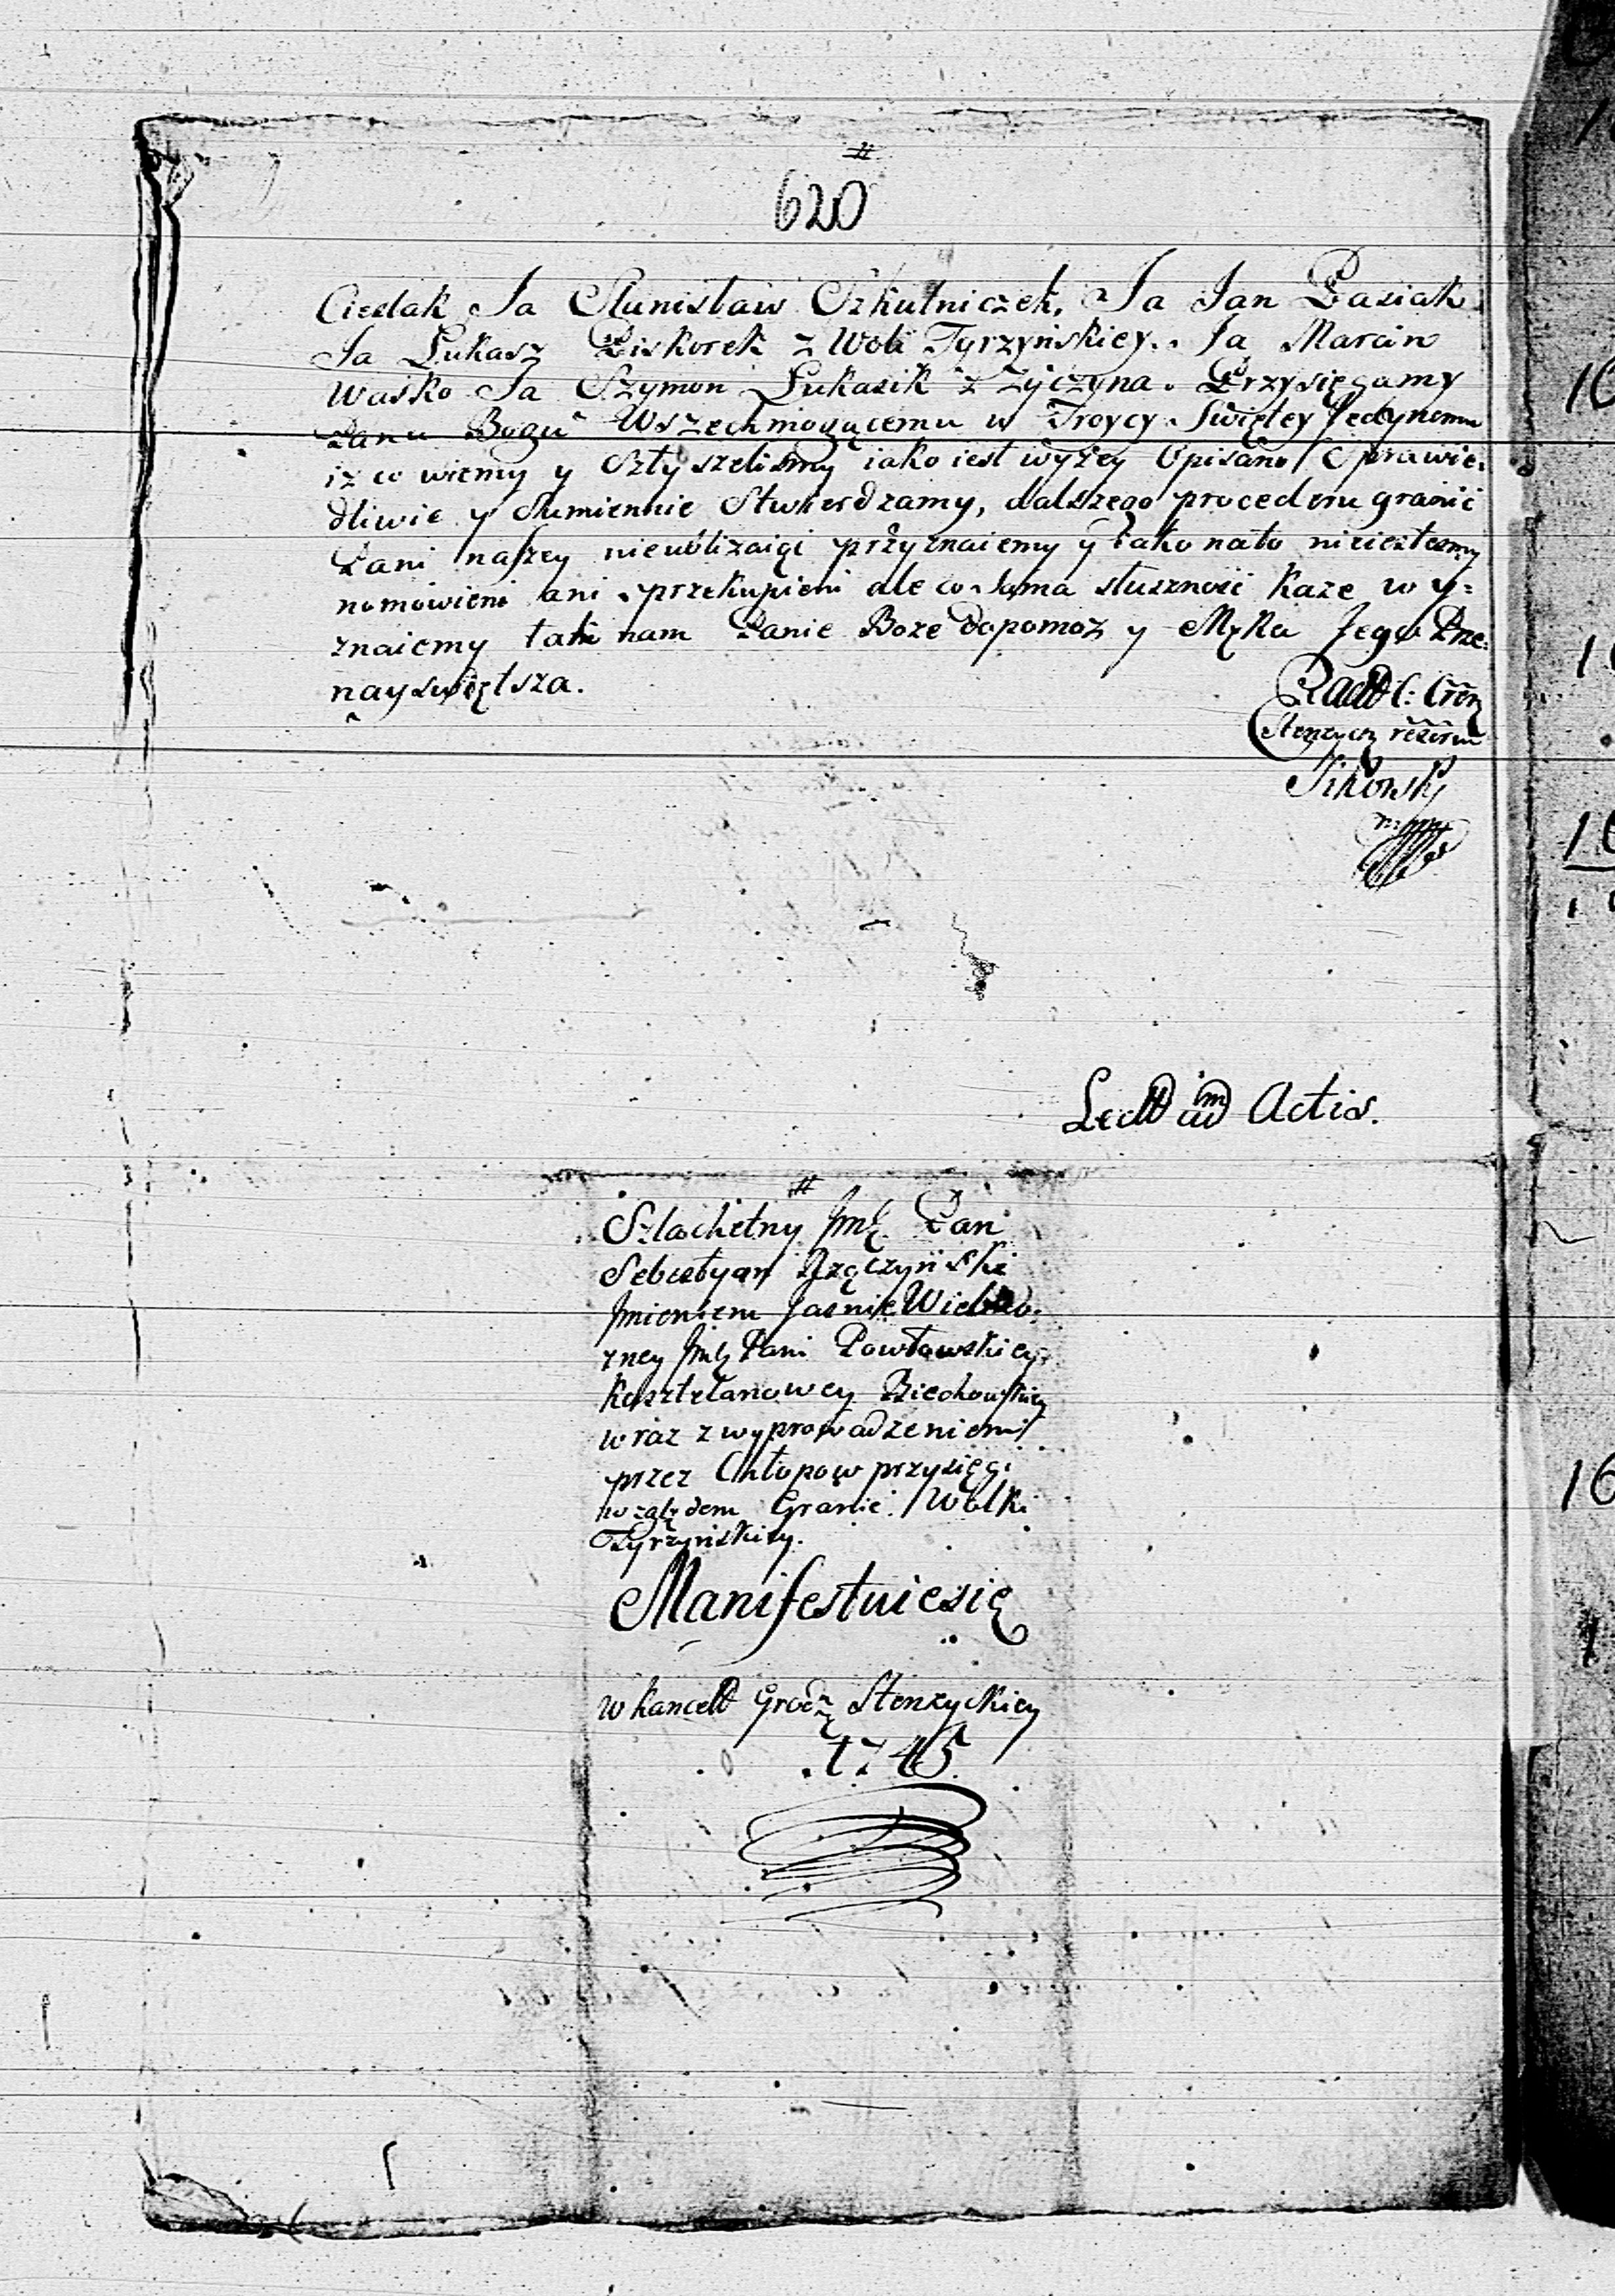 620
Cieslak Ja Stanisław Szkutniczek, Ja Jan Pasiak
Ja Łukasz Piskorek z Woli Tyrzyńskiey. Ja Marcin
Waśko Ja Szymon Łukasik z Życzyna. Przysięgamy
Panu Bogu Wszechmogącemu w Troycy Swiętey Jedynemu
iż co wiemy y Słyszeliśmy iako iest wyżey Opisano Sprawie.
dliwie y Sumiennie Stwierdzamy, dalszego procederu granic
Pani naszey nieubliżaiąi przyznaiemy y iako nato nieiestesmy
namowieni ani przekupieni ale co Sama słuszność każe wy=
znaiemy tak nam Panie Boże dopomoż y Męka Jego Prze:
nayswiętsza.
Stenzycz
Lectt Actis.
Szlachetny Jmć Pan
Sebestyan Rzączyński
Jmieniem Jasnie Wielmo:
zney Jmć Pani Pawłowskiey
Kasztelanowey Biechowskiey
wraz z wyprowadzeniem
przez Chłopow przysięgi
względem Granic Wolki
Tyrzyńskiey.
Manifestuiesię
w Kancell Grodz Stenzyckiey
1745